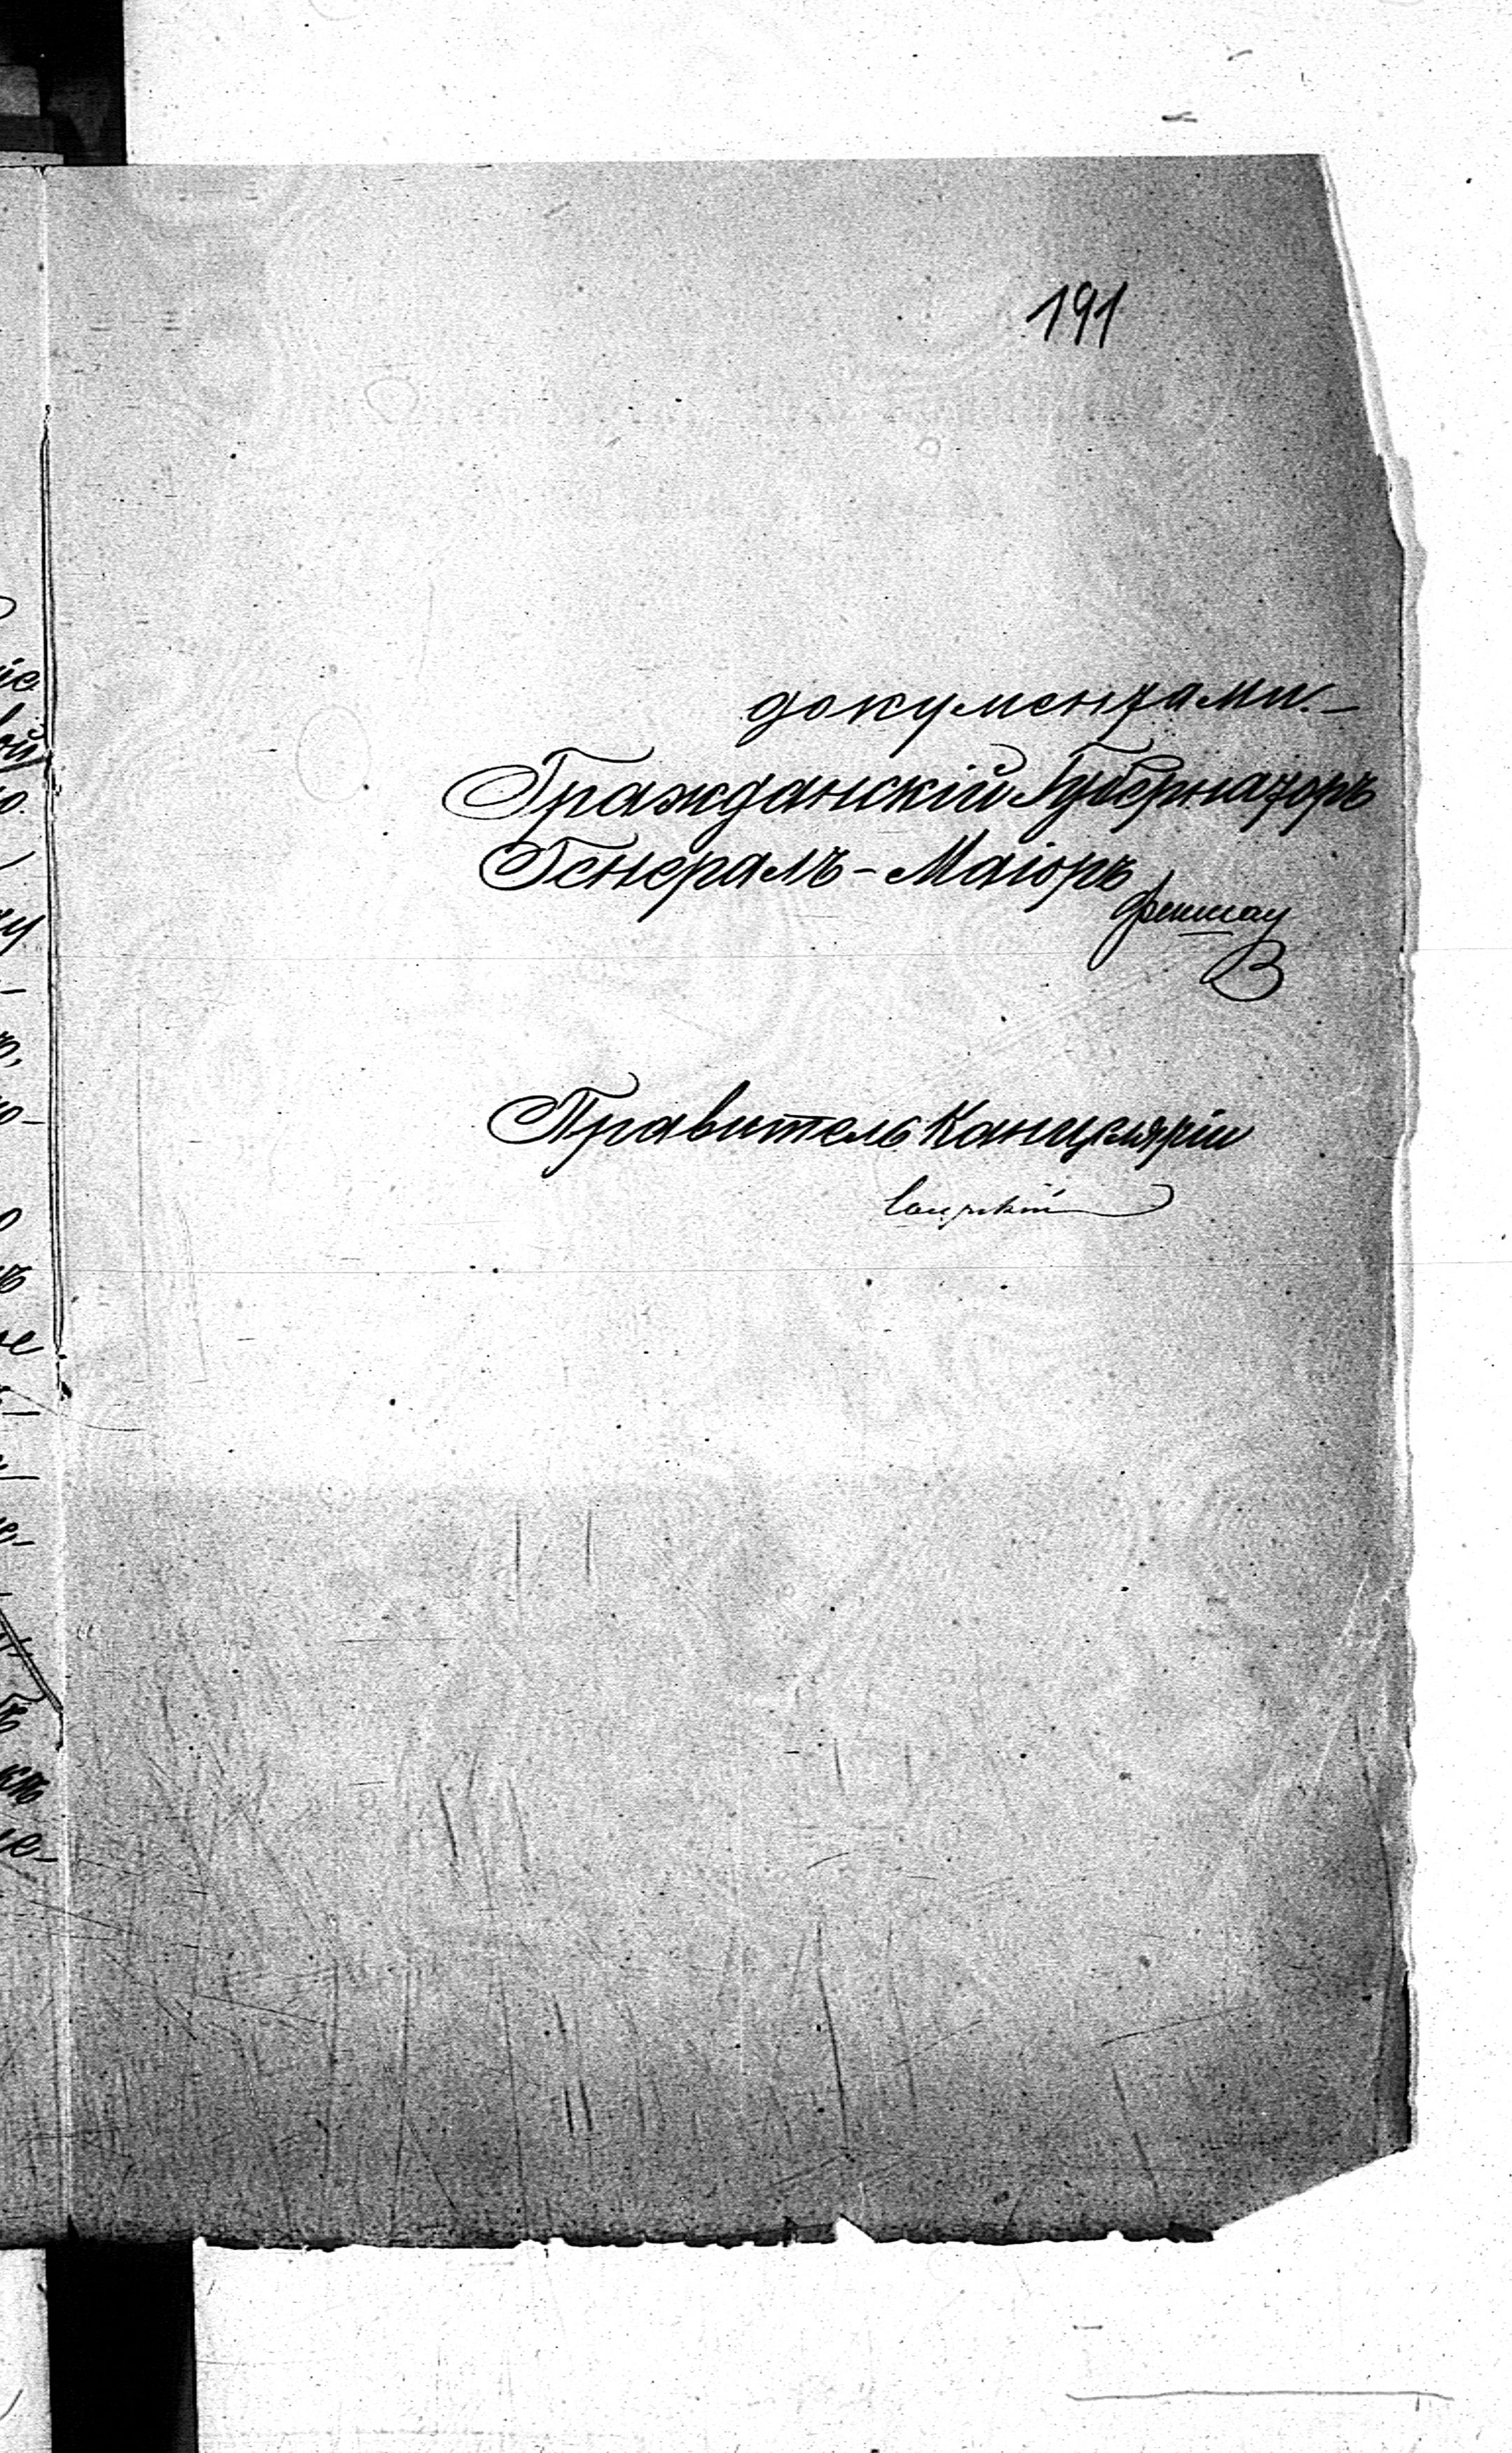 191
документами.—
Гражданскій Губернаторъ
Генералъ-Маіоръ
Правитель Канцеляріи